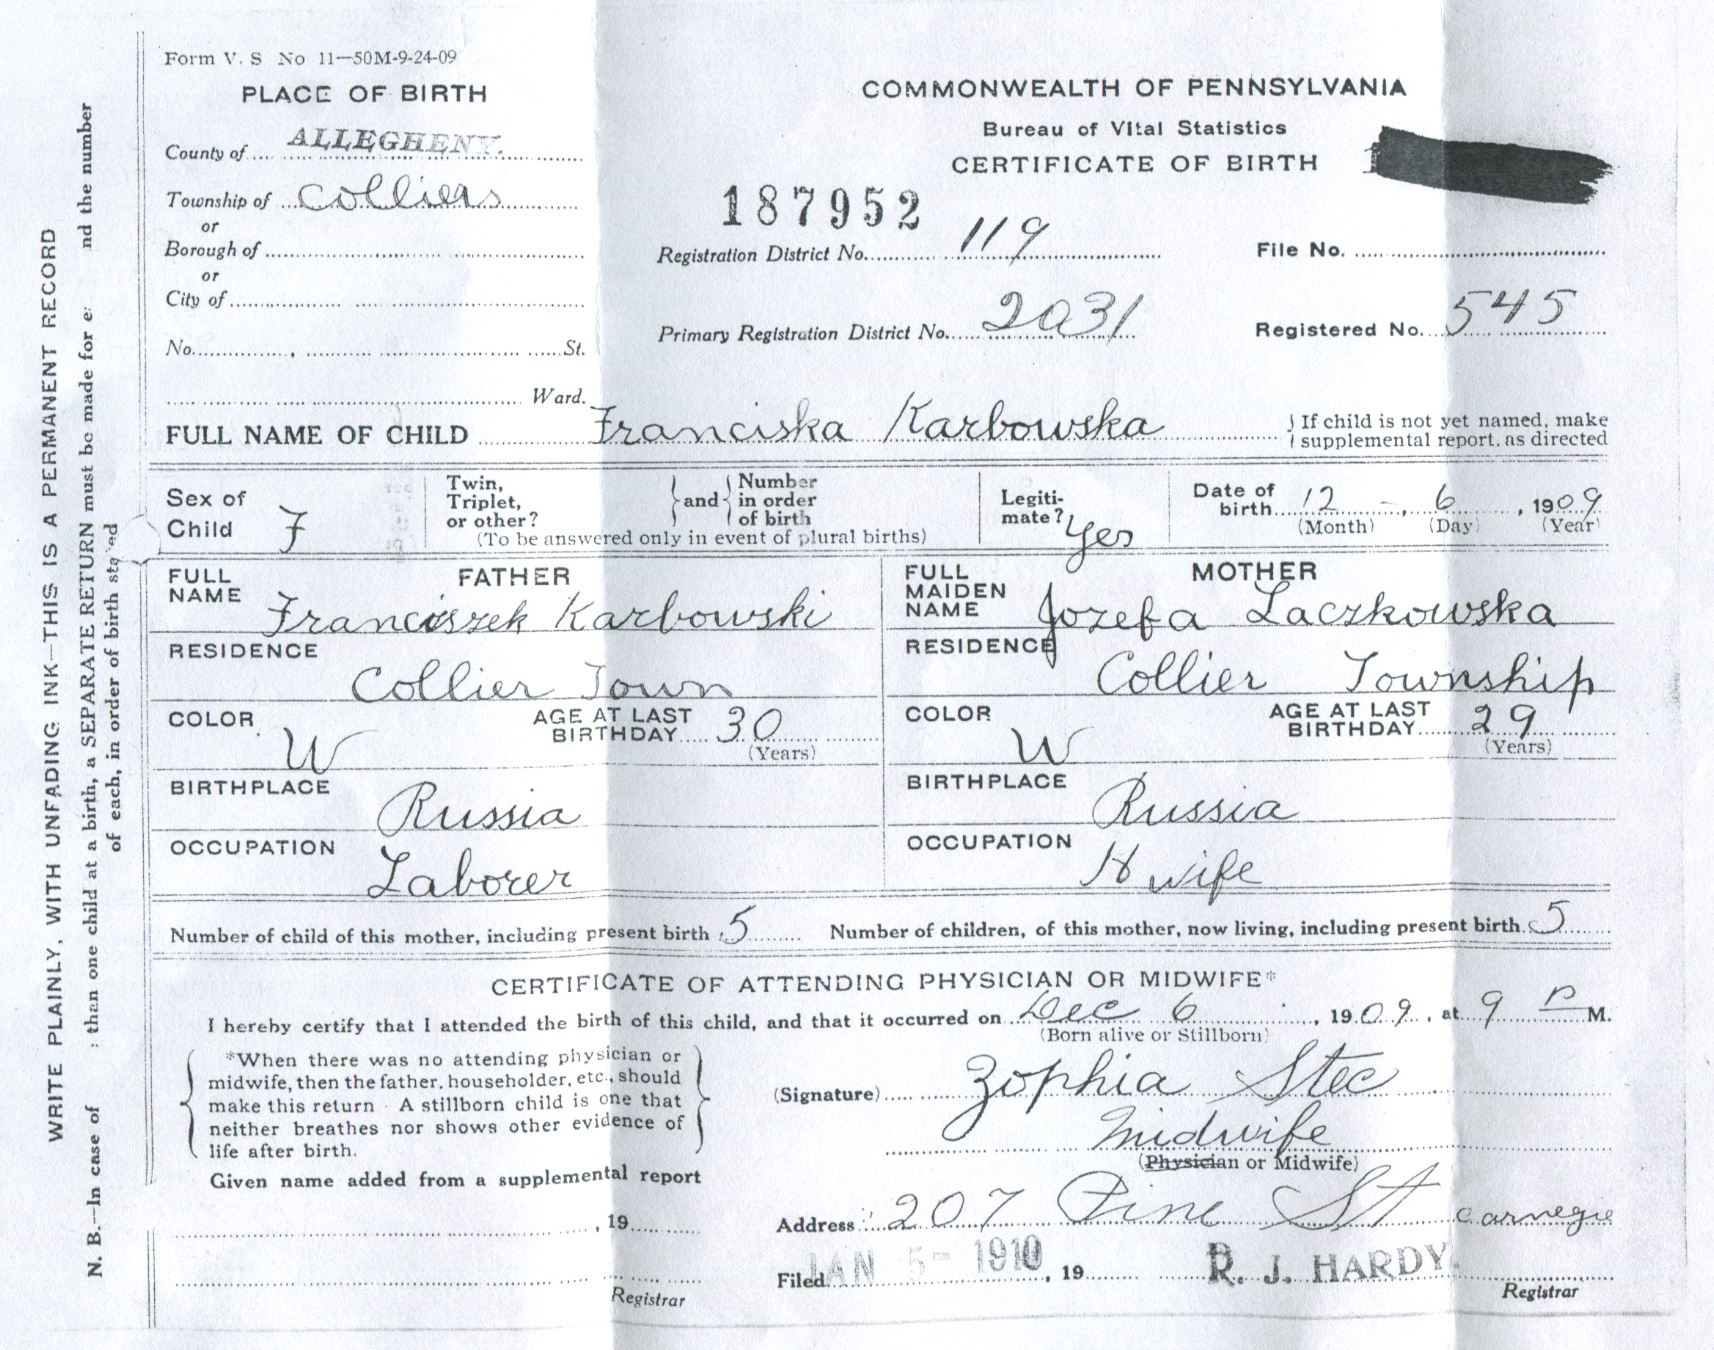 Form V. S No 11—50M-9-24-09
PLACE OF BIRTH
County of ALLEGHENY.
Township of Colliers
or
Borough of
or
City of
No. , St.
Ward.
COMMONWEALTH OF PENNSYLVANIA
Bureau of Vital Statistics
CERTIFICATE OF BIRTH
187952
Registration District No. 119
File No.
Primary Registration District No. 2031
Registered No. 545
FULL NAME OF CHILD Franciska Karbowska
If child is not yet named, make
supplemental report, as directed
Sex of
Child F
Twin,
Triplet,
or other?
and
Number
in order
of birth
(To be answered only in event of plural births)
Legiti-
mate? Yes
Date of
birth 12 - , 6 , 1909
(Month) (Day) (Year)
FATHER
FULL
NAME Franciszek Karbowski
RESIDENCE
Collier Town
COLOR W
AGE AT LAST
BIRTHDAY 30
(Years)
BIRTHPLACE
Russia
OCCUPATION
Laborer
MOTHER
FULL
MAIDEN
NAME Jozefa Laczkowska
RESIDENCE
Collier Township
COLOR W
AGE AT LAST
BIRTHDAY 29
(Years)
BIRTHPLACE
Russia
OCCUPATION
H wife
Number of child of this mother, including present birth 5 Number of children, of this mother, now living, including present birth. 5
CERTIFICATE OF ATTENDING PHYSICIAN OR MIDWIFE*
I hereby certify that I attended the birth of this child, and that it occurred on Dec 6 , 1909 , at 9 P M.
(Born alive or Stillborn)
*When there was no attending physician or
midwife, then the father, householder, etc., should
make this return. A stillborn child is one that
neither breathes nor shows other evidence of
life after birth.
(Signature) Zophia Stec
Midwife
(Physician or Midwife)
Given name added from a supplemental report
, 19
Registrar
Address 207 Pine St Carnegie
Filed JAN 5- 1910 , 19 R. J. HARDY.
Registrar
WRITE PLAINLY, WITH UNFADING INK—THIS IS A PERMANENT RECORD
N. B.—In case of than one child at a birth, a SEPARATE RETURN must be made for e nd the number
of each, in order of birth stated